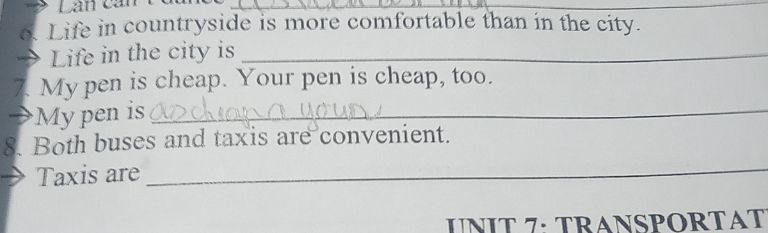 → Lan can't
6. Life in countryside is more comfortable than in the city.
→ Life in the city is
7. My pen is cheap. Your pen is cheap, too.
→My pen is
8. Both buses and taxis are convenient.
→ Taxis are
UNIT 7: TRANSPORTAT